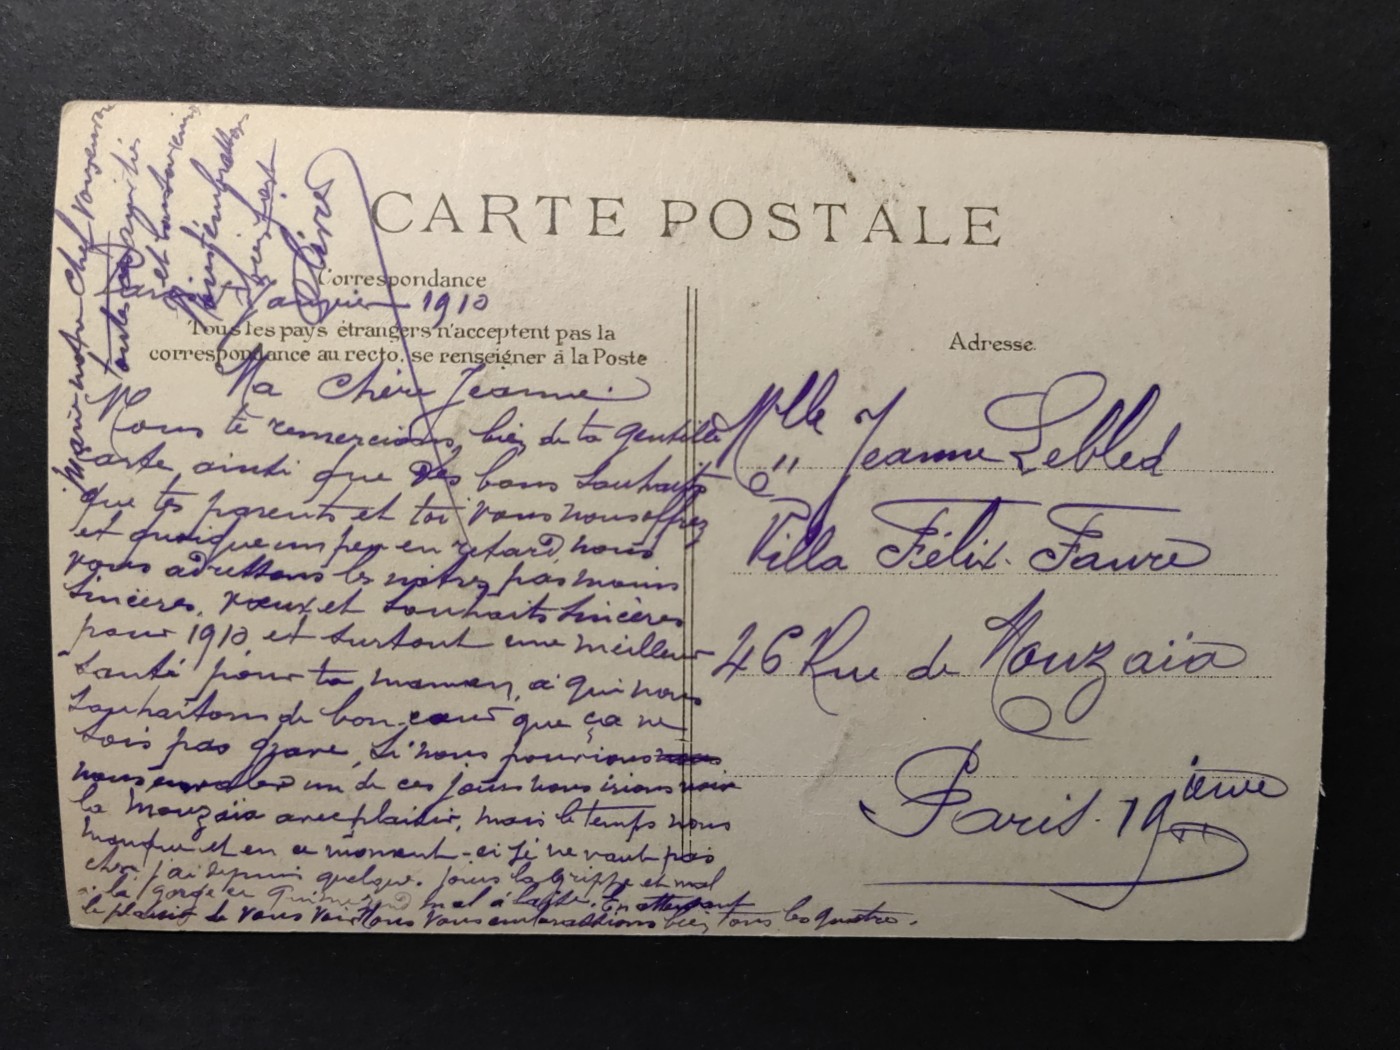 CARTE POSTALE
Correspondance
Janvier 1910
Tous les pays étrangers n'acceptent pas la
correspondance au recto, se renseigner à la Poste
Ma chère Jeanne.
Nous te remercions bien de ta gentille
carte, ainsi que des bons souhaits
que tes parents et toi vous nous offrez
et quoique un peu en retard nous
vous adressons les nôtres pas moins
sincères, vœux et souhaits sincères
pour 1910 et surtout une meilleur
santé pour ta maman, à qui nous
souhaitons de bon cœur que ça ne
sois pas grave, si nous pourrions
un de ces jours nous irions voir
la Mouzaïa avec plaisir, mais le temps nous
manque et en ce moment-ci je ne vaut pas
cher j'ai depuis quelque. jours la grippe et mal
à la gorge ce qui me rend mal à l'aise. En attendant
le plaisir de vous voir Nous vous embrassons bien tous les quatre.
toutes ces amitiés
et tout
Pierre
Adresse
Mlle Jeanne Lebled
Villa Félix-Faure
46 Rue de Mouzaïa
Paris. 19ième